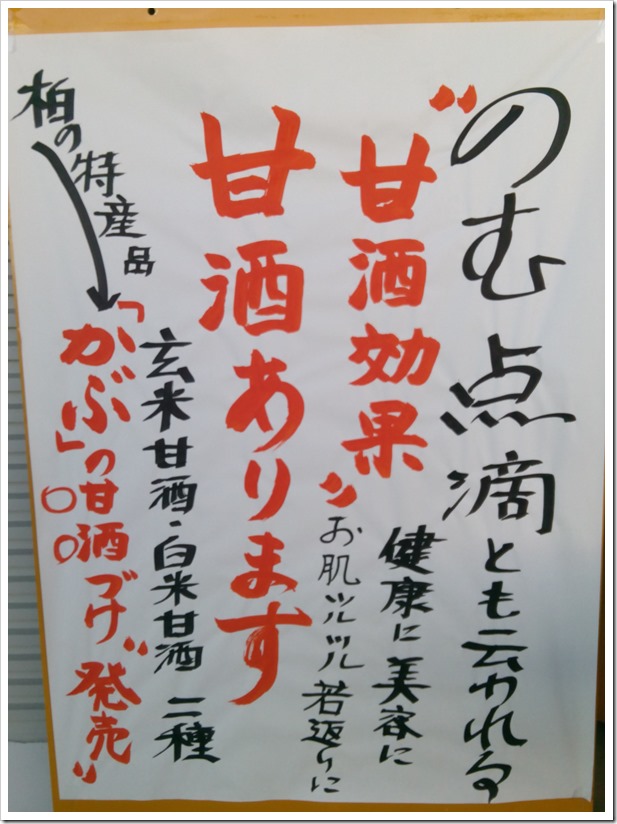 のむ点滴とも云われる
"甘酒効果"
健康に美容に
お肌ツルツル若返りに
甘酒あります
玄米甘酒・白米甘酒 二種
柏の特産品
「かぶ」の甘酒づけ"発売"